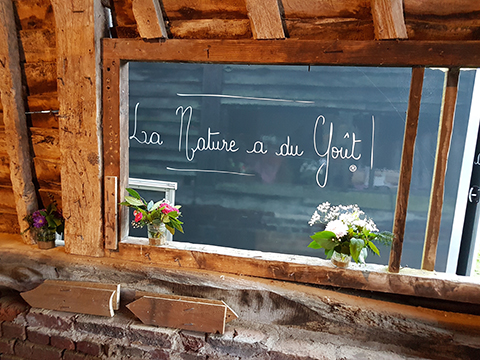 La Nature a du Goût !
®